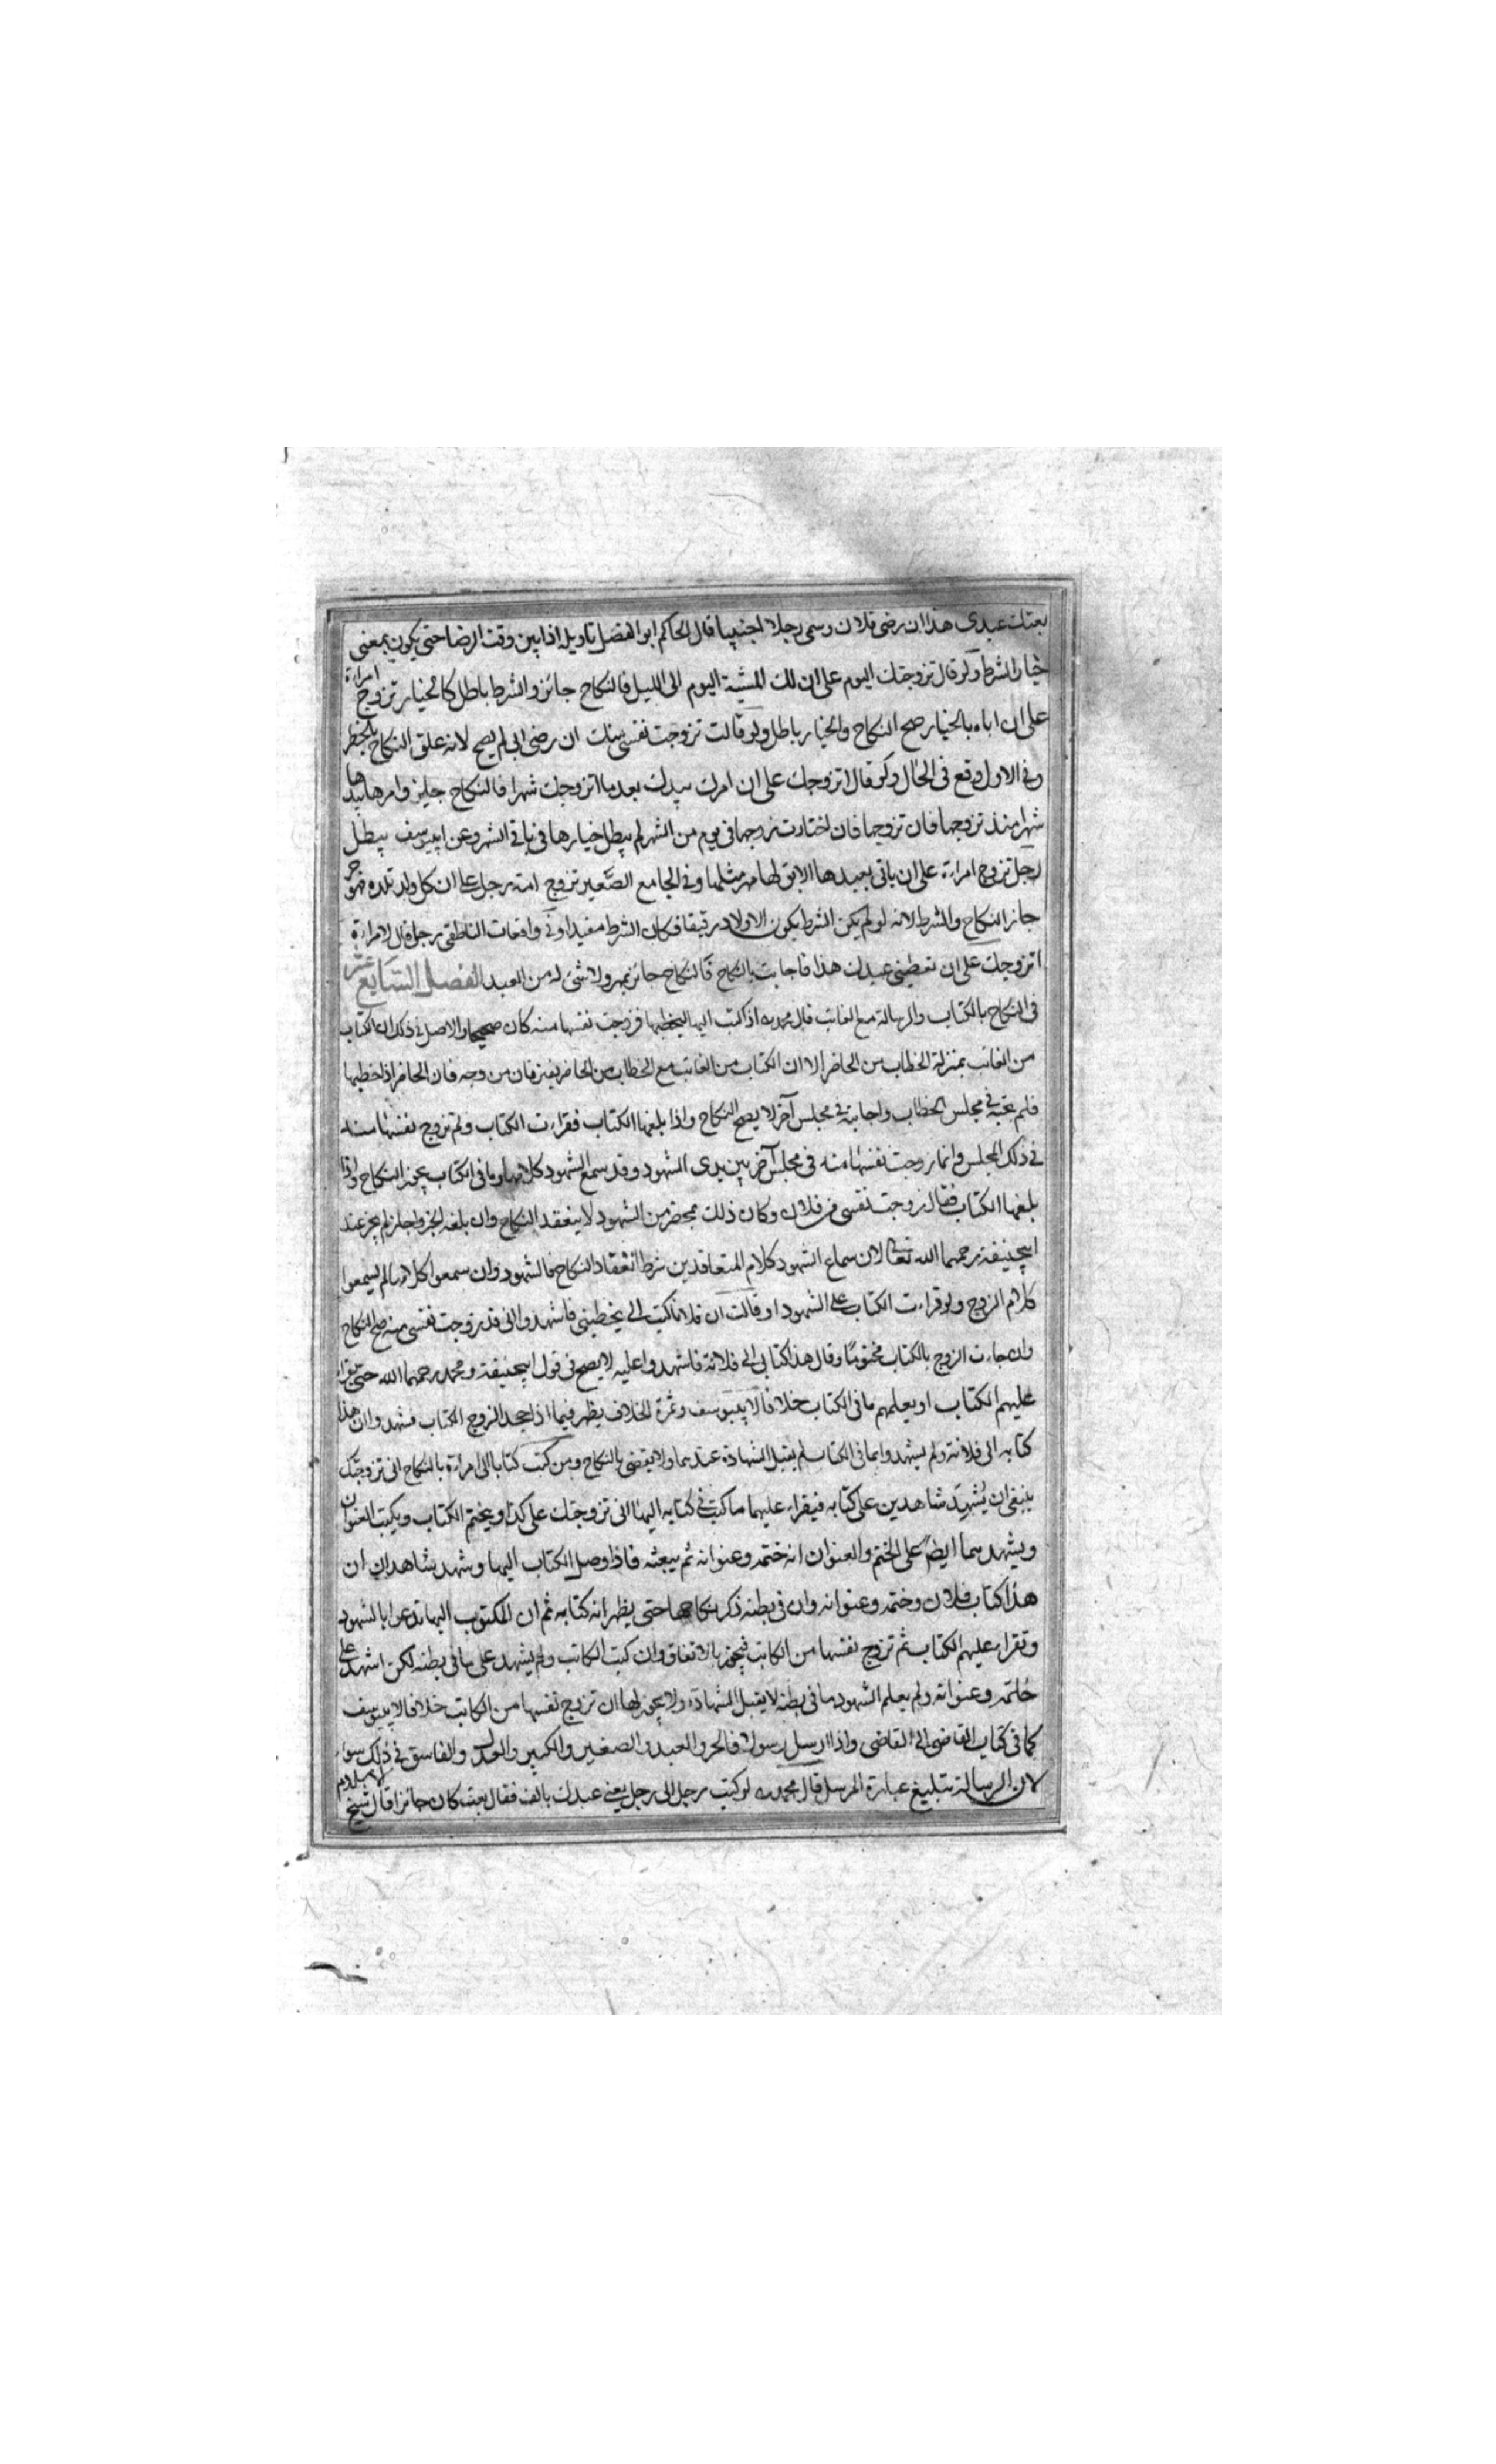 بعتك عبدى هذا ان رضى فلان وسمى رجلا اجنبيا قال الحاكم ابو الفضل تاويله اذا بين وقت الرضا حتى يكون بمعنى
خيار الشرط ولو قال تزوجتك اليوم على ان لك المشية اليوم الى الليل فالنكاح جائز والشرط باطل كالخيار تزوج امراءة
على ان اباه بالخيار صح النكاح والخيار باطل ولو قالت تزوجت نفسى منك ان رضى ابى لم يصح لانه علق النكاح بالخطر
وفى الاول وقع فى الحال ولو قال اتزوجك على ان امرك بيدك بعد ما اتزوجك شهرا فالنكاح جايز وامرها بيدها
شهرا منذ تزوجها فان تزوجها فان اختارت زوجها فى يوم من الشهر لم يبطل خيارها فى باقى الشهر وعن ابييوسف يبطل
رجل تزوج امراءة على ان ياتى بعبدها الابق لها مهر مثلها وفى الجامع الصغير تزوج امة رجل على ان كل ولد تلده فهو حر
جاز النكاح والشرط لانه لو لم يكن الشرط يكون الاولاد رقيقا فكان الشرط مفيدا وفى واقعات الناطقى رجل قال لامراءة
اتزوجك على ان تعطينى عبدك هذا فاجابت بالنكاح فالنكاح جائز بمهر ولا شئ له من العبد الفصل السابع عشر
فى النكاح بالكتاب والرسالة مع الغائب قال محمد رح اذ كتب اليها ليخطبها فزوجت نفسها منه كان صحيحا والاصل فى ذلك ان الكتاب
من الغائب بمنزلة الخطاب من الحاضر الا ان الكتاب من الغائب مع الخطاب من الحاضر يفترقان من وجه فان الحاضر اذا خطبها
فلم تجبه فى مجلس الخطاب واجابته فى مجلس آخر لا يصح النكاح واذا بلغها الكتاب فقراءت الكتاب ولم تزوج نفسها منه
فى ذلك المجلس وانما زوجت نفسها منه فى مجلس آخر بين يدى الشهود وقد سمع الشهود كلامها وما فى الكتاب يجوز النكاح واذا
بلغها الكتاب فقال زوجت نفسى من فلان وكان ذلك بمحضر من الشهود لا ينعقد النكاح وان بلغه الخبر واجاز لم يجز عند
ابيحنيفة رحمهما الله تعالى لان سماع الشهود كلام المتعاقدين شرط انعقاد النكاح فالشهود وان سمعوا كلامها لم يسمعوا
كلام الزوج ولو قراءت الكتاب على الشهود او قالت ان فلانا كتب الى يخطبنى فاشهدوا انى قد زوجت نفسى منه صح النكاح
وان جاءت الزوج بالكتاب مختوما وقال هذا كتابى الى فلانة فاشهدوا عليه لا يصح فى قول ابيحنيفة ومحمد رحمهما الله حتى يقراء
عليهم الكتاب او يعلمهم ما فى الكتاب خلافا لابييوسف وثمرة الخلاف يظهر فيما اذا جحد الزوج الكتاب فشهدوا ان هذا
كتابه الى فلانة ولم يشهدوا بما فى الكتاب لم يقبل الشهادة عندهما ولا يقضى بالنكاح ومن كتب كتابا الى امراءة بالنكاح انى تزوجتك
ينبغى ان يشهد شاهدين على كتابه فيقراء عليهما ما كتب فى كتابه اليها انى تزوجتك على كذا ويختم الكتاب ويكتب العنوان
ويشهدهما ايضا على الختم والعنوان انه ختمه وعنوانه ثم يبعثه فاذا وصل الكتاب اليها وشهد شاهدان ان
هذا كتاب فلان وختمه وعنوانه وان فى بطنه ذكر نكاحها حتى يظهر انه كتابه ثم ان المكتوب اليها تدعوا بالشهود
وتقراء عليهم الكتاب ثم تزوج نفسها من الكاتب فيجوز بالاتفاق وان كتب الكاتب ولم يشهد على ما فى بطنه لكن اشهد على
ختمه وعنوانه ولم يعلم الشهود ما فى بطنه لا يقبل الشهادة ولا يجوز لها ان تزوج نفسها من الكاتب خلافا لابييوسف
كما فى كتاب القاضى الى القاضى واذا ارسل رسولا فالحر والعبد والصغير والكبير والعدل والفاسق فى ذلك سواء
لان الرسالة تبليغ عبارة المرسل قال محمد رح لو كتب رجل الى رجل بعنى عبدك بالف فقال بعت كان جائزا قال شيخ الاسلام